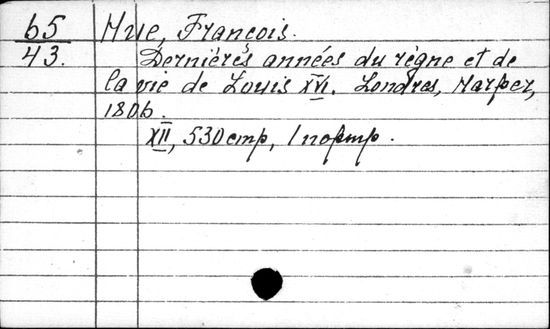 65 Hue, François.
43. Dernières années du règne et de
la vie de Louis XVI. Londres, Harper,
1806.
XII, 530 cmp, 1 нопмр.